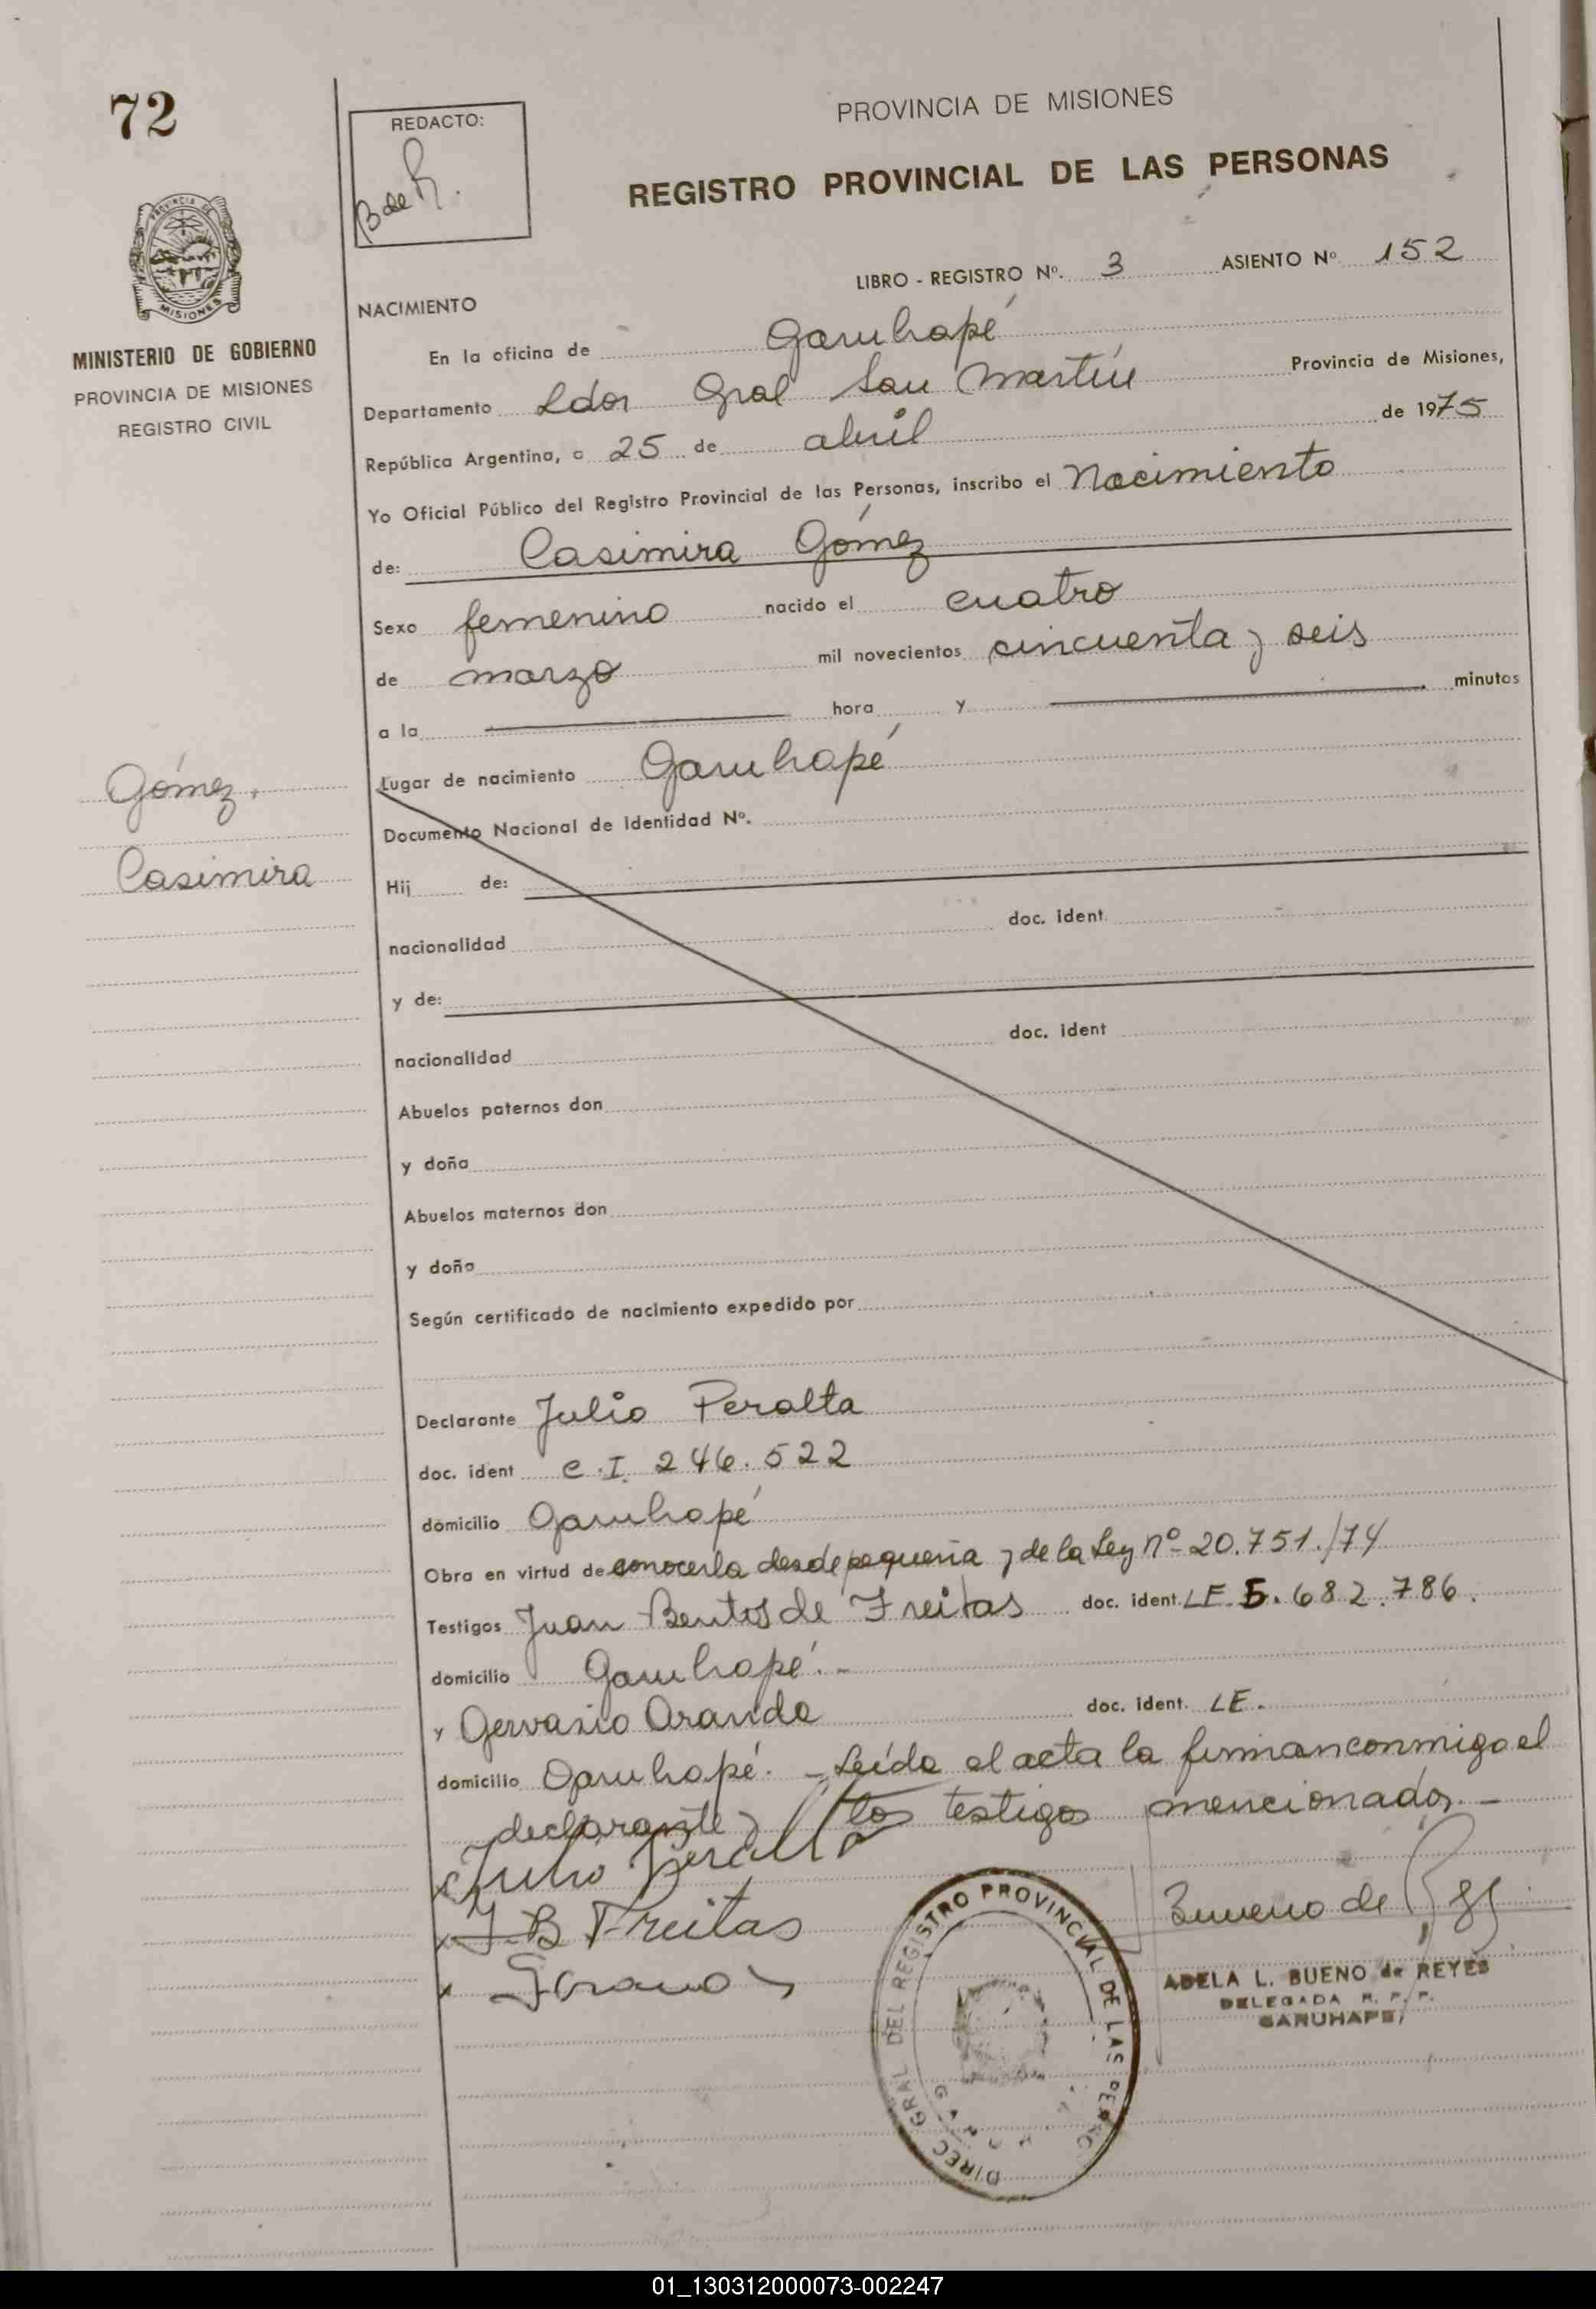 72
REDACTO:
B de R.
PROVINCIA DE MISIONES
REGISTRO PROVINCIAL DE LAS PERSONAS
PROVINCIA DE
MISIONES
MINISTERIO DE GOBIERNO
PROVINCIA DE MISIONES
REGISTRO CIVIL
LIBRO - REGISTRO Nº. 3 ASIENTO Nº 152
NACIMIENTO
En la oficina de Garuhapé
Departamento Ldor Gral San Martín Provincia de Misiones,
República Argentina, a 25 de abril de 1975
Yo Oficial Público del Registro Provincial de las Personas, inscribo el Nacimiento
de: Casimira Gómez
Sexo femenino nacido el cuatro
de marzo mil novecientos cincuenta y seis
a la hora y minutos
Lugar de nacimiento Garuhapé
Gómez.
Casimira
Documento Nacional de Identidad Nº.
Hij de:
nacionalidad doc. ident.
y de:
nacionalidad doc. ident
Abuelos paternos don
y doña
Abuelos maternos don
y doña
Según certificado de nacimiento expedido por
Declarante Julio Peralta
doc. ident C.I. 246.522
domicilio Garuhapé
Obra en virtud de conocerla desde pequeña y de la Ley nº 20.751./74
Testigos Juan Bentos de Freitas doc. ident. LE 5.682.786.
domicilio Garuhapé.-
y Gervasio Aranda doc. ident. LE.
domicilio Garuhapé. - Leída el acta la firman conmigo el
declarante y los testigos mencionados.-
x Julio Peralta
x J.B Freitas
x
Bueno de
DIREC GRAL DEL REGISTRO PROVINCIAL DE LAS PERSO
ADELA L. BUENO de REYES
DELEGADA R. P. P.
GARUHAPE
01_130312000073-002247